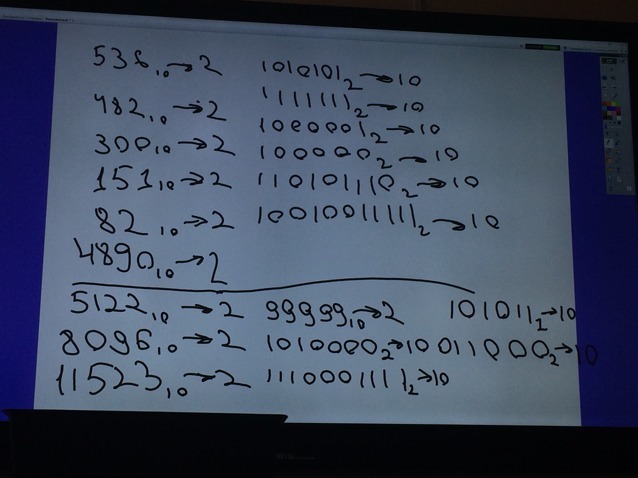 536₁₀→2 1010101₂→10
482₁₀→2 1111111₂→10
300₁₀→2 1000001₂→10
151₁₀→2 1000000₂→10
82₁₀→2 110101110₂→10
4890₁₀→2 10010011111₂→10
5122₁₀→2 99999₁₀→2 101011₂→10
8096₁₀→2 1010000₂→10 011000₂→10
11523₁₀→2 111000111₂→10